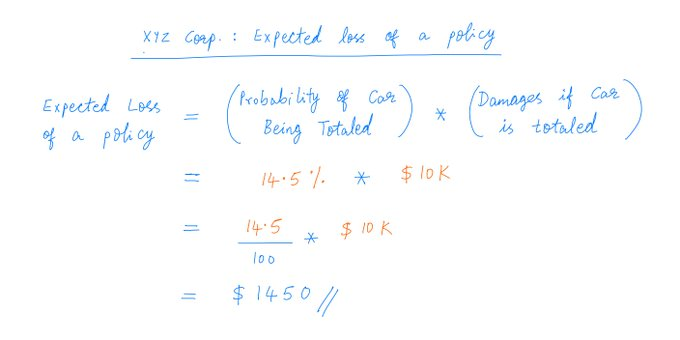 XYZ Corp. : Expected loss of a policy
Expected Loss of a policy = (Probability of Car Being Totaled) * (Damages if Car is totaled)
= 14.5 % * $ 10K
= 14.5 / 100 * $ 10K
= $ 1450 //